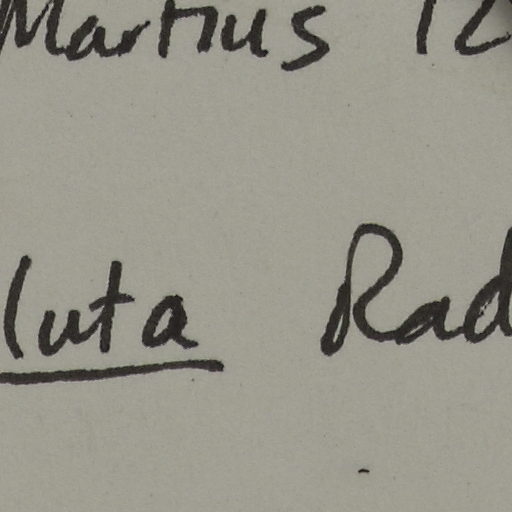 Martius 12
luta Rad